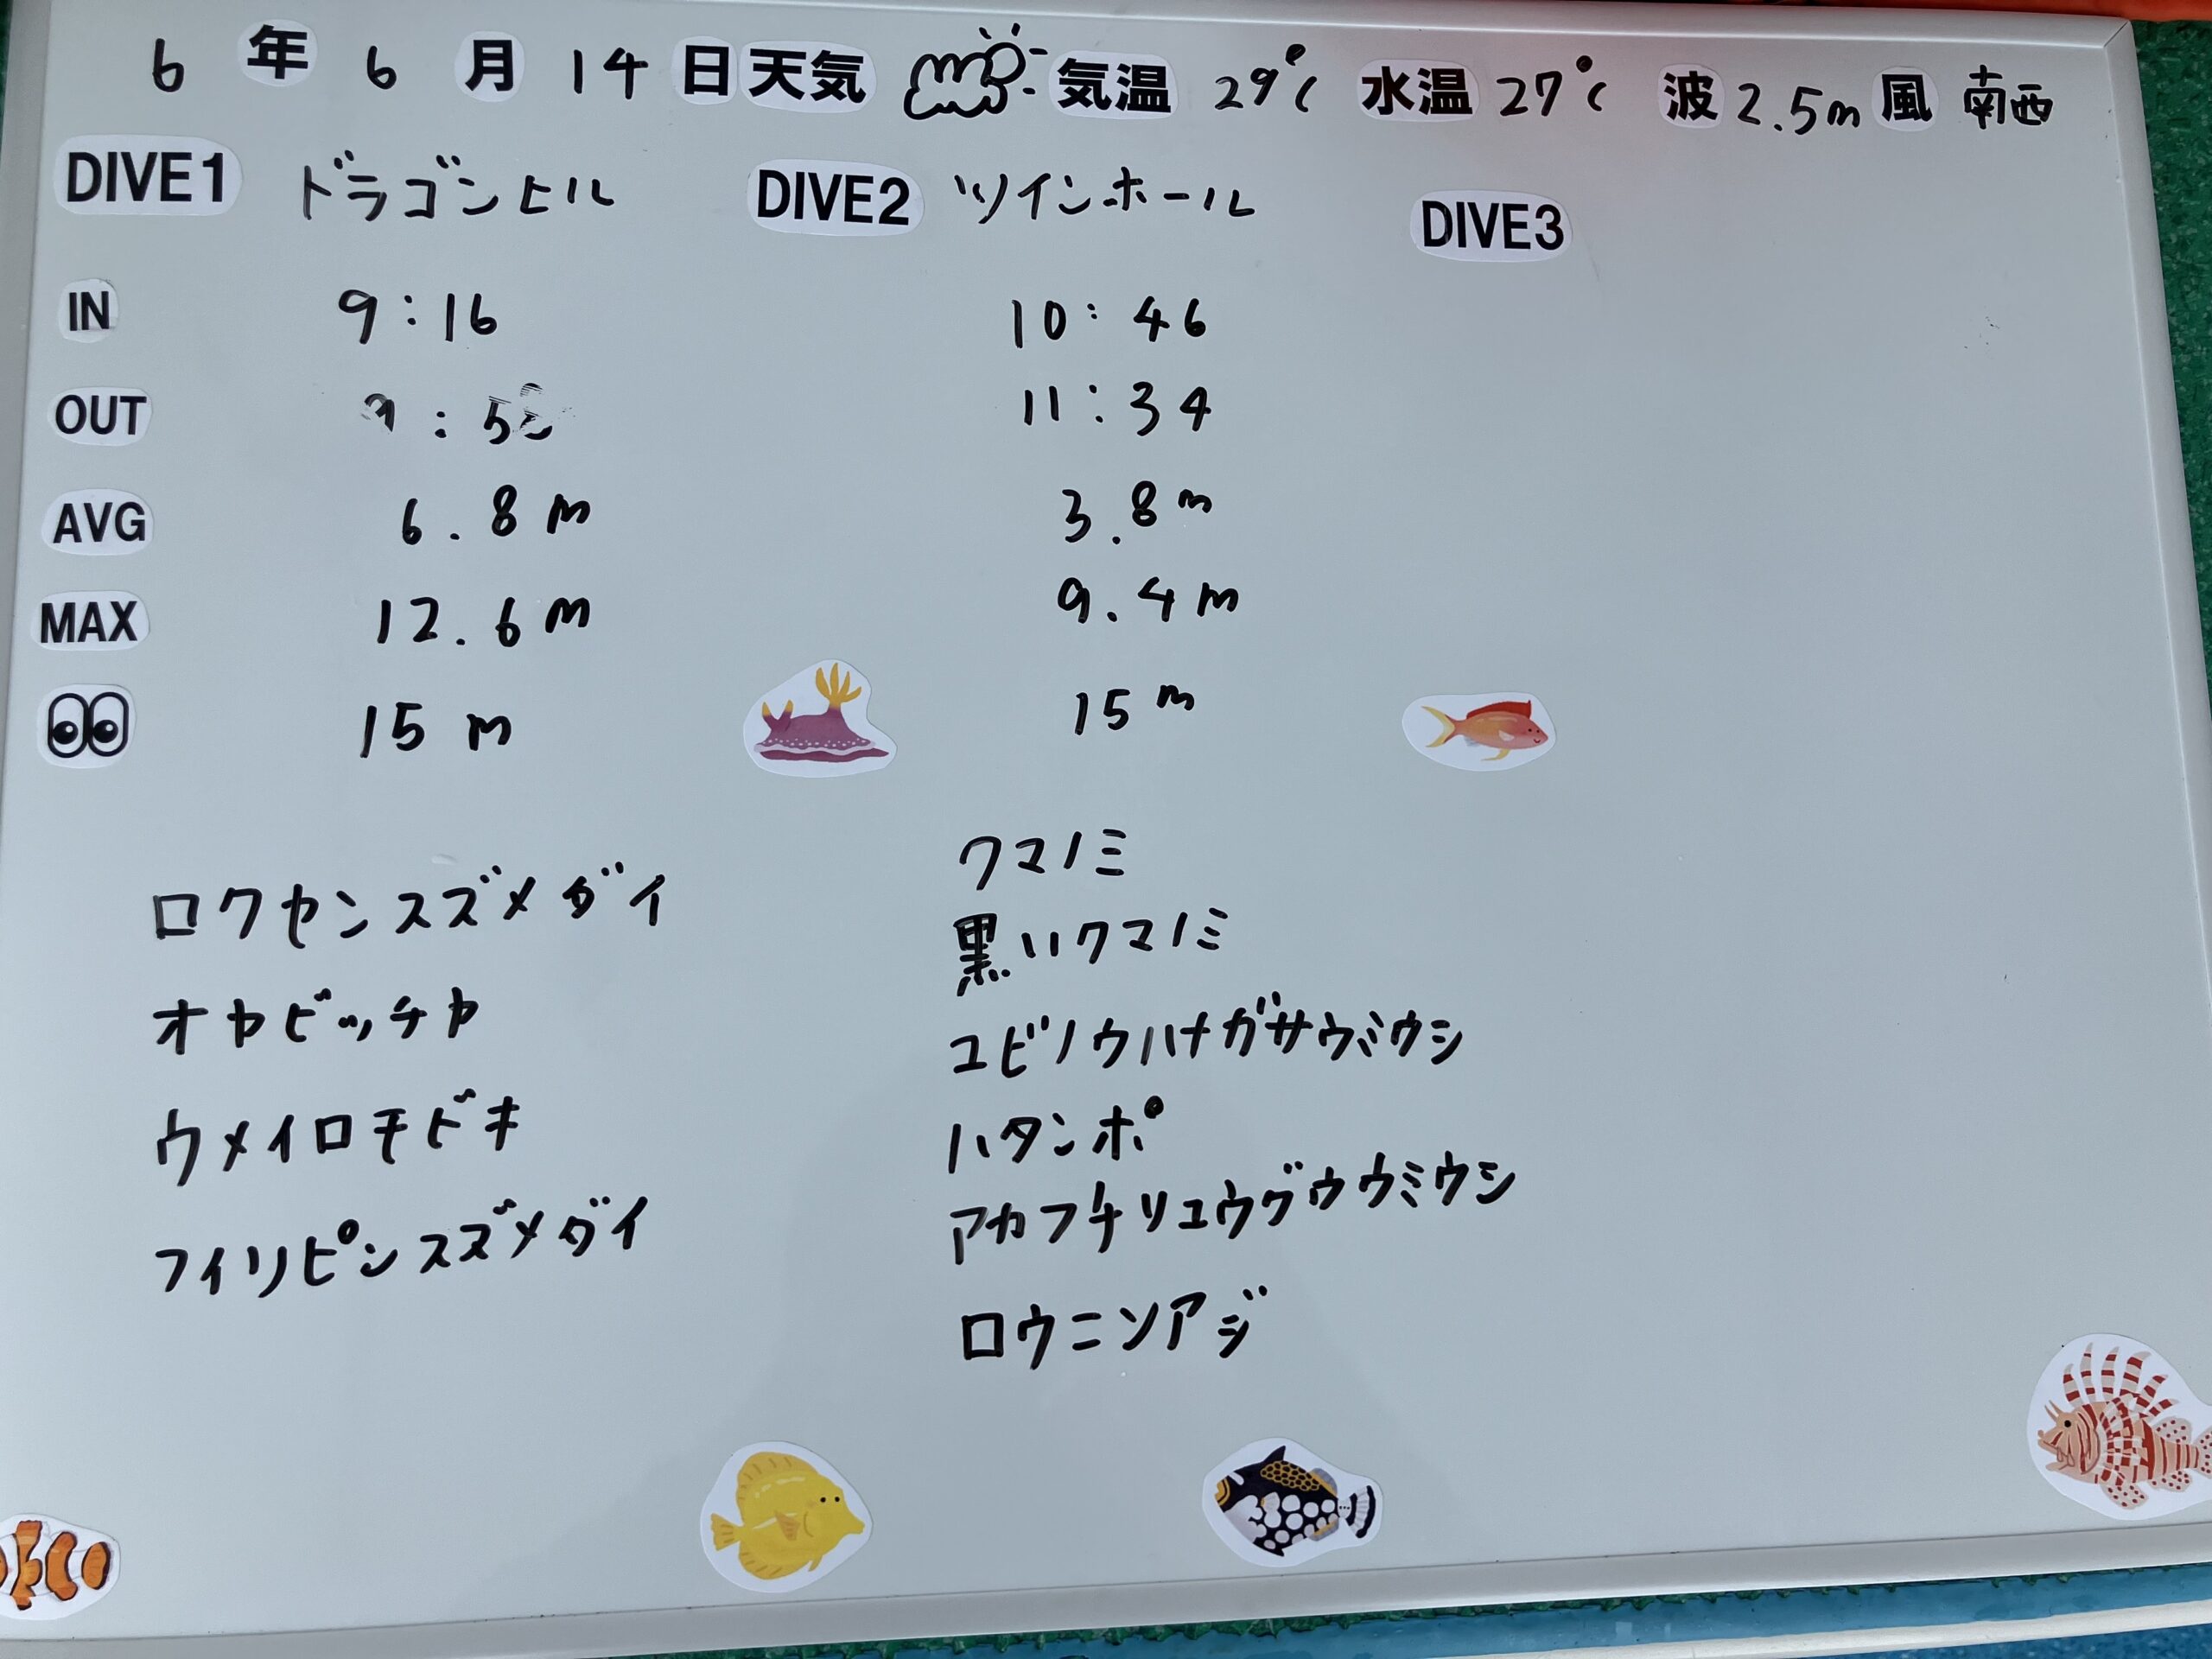 6 年 6 月 14 日 天気 気温 29℃ 水温 27℃ 波 2.5m 風 南西
DIVE1 ドラゴンヒル DIVE2 ツインホール DIVE3
IN 9:16 10:46
OUT 11:34
AVG 6.8m 3.8m
MAX 12.6m 9.4m
15m 15m
ロクセンスズメダイ
オヤビッチャ
ウメイロモドキ
フィリピンスズメダイ
クマノミ
黒いクマノミ
ユビノウハナガサウミウシ
ハタンポ
アカフチリュウグウウミウシ
ロウニンアジ